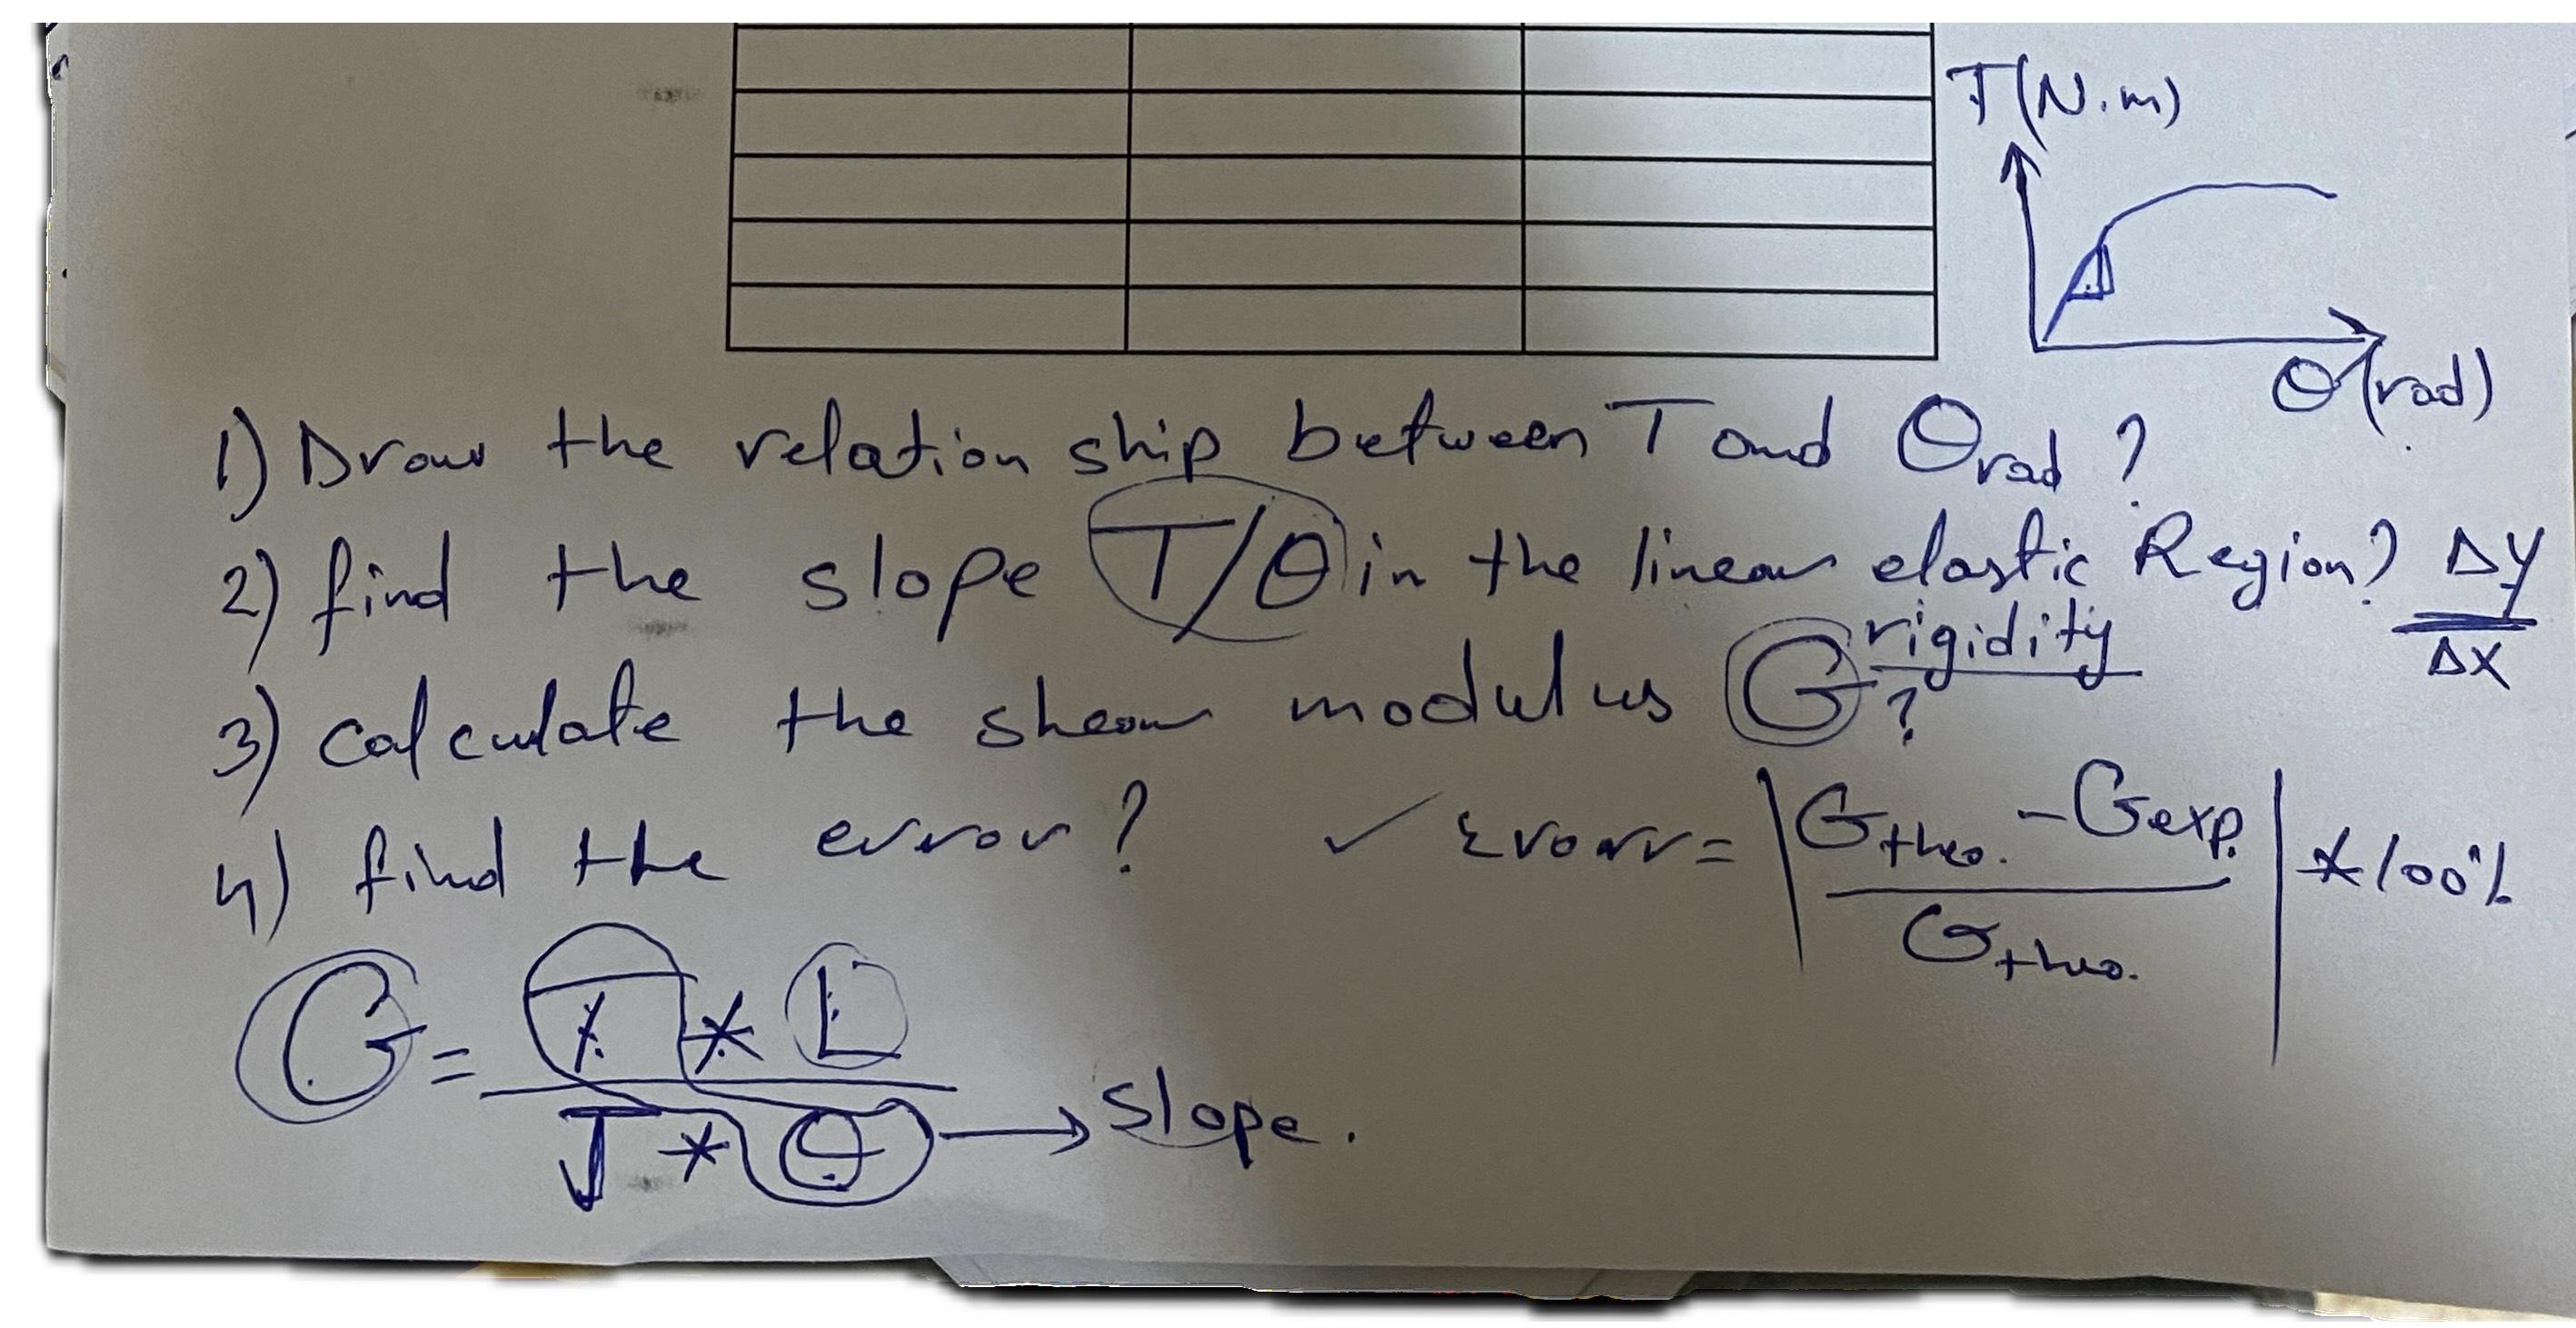 T(N.m)
θ(rad)
1) Draw the relation ship between T and θrad ?
2) find the slope T/θ in the linear elastic Region? Δy
ΔX
rigidity
3) calculate the shear modulus G ?
4) find the error? ✓ Error = | Gtheo. - Gexp. | * 100%
Gtheo.
G = T * L
J * θ → slope.